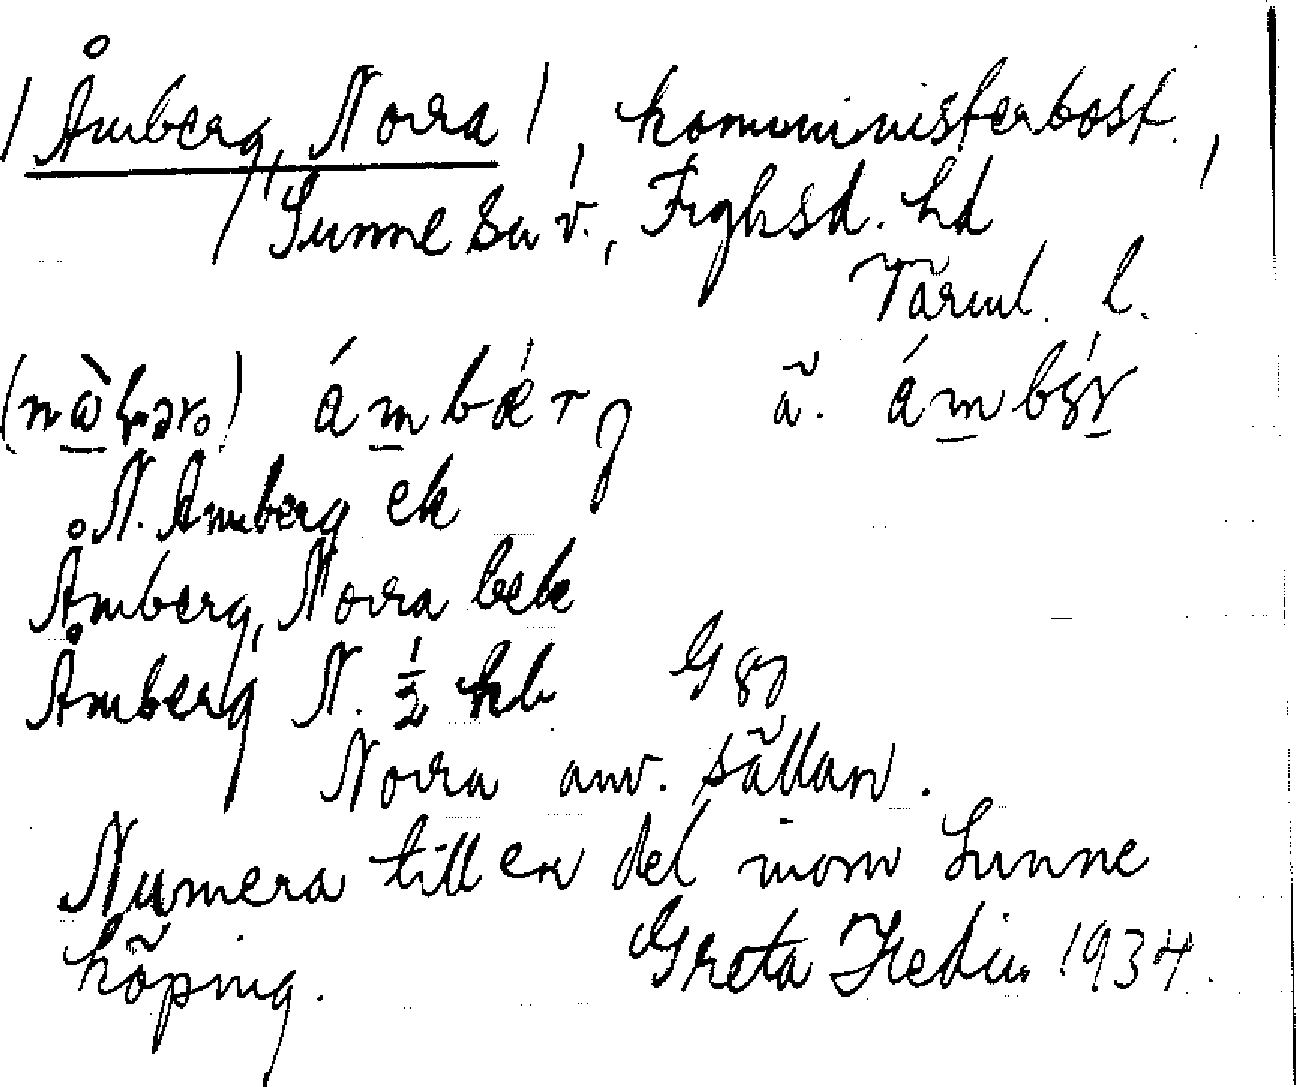 / Åmberg, Norra /, komministerbost.,
Sunne sn v., Fryksd. hd
Värml. l.
ámbær ä. ámb
N. Åmberg ek
Åmberg, Norra bek
Åmberg N. ½ kb G 87
Norra anv. sällan.
Numera till en del inom Sunne
köping. Greta Hedin 1934.